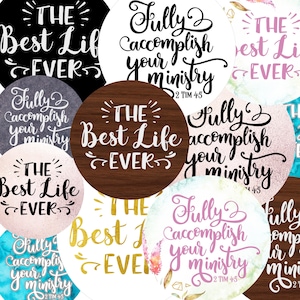 THE
Best Life
EVER
Fully
accomplish
your
ministry
2 TIM 4:5
THE
Best Li
EVER
Fully
accomplish
your
ministry
2 TIM 4:5
THE
Best Life
EVER
Fully
accomplish
your
ministry
2 TIM 4:5
THE
Best Life
EVER
THE
Best L
EVER
Fully
accomplish
your
ministry
2 TIM 4:5
Fully
accomplish
your
ministry
2 TIM 4:5